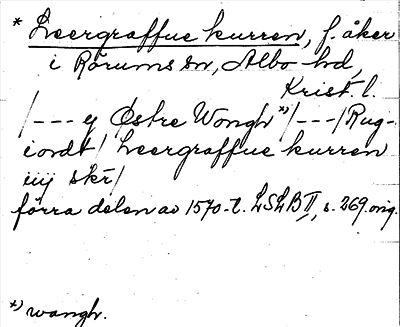 * Leergraffue kurren, f. åker
i Rörums sn, Albo hd,
Krist. l.
/--- y Østre Wongh *)/---/Rug-
iordt/ Leergraffue kurren
iiij skr/
förra delen av 1570-t. LSLB II, s. 269. orig.
*) wangh.